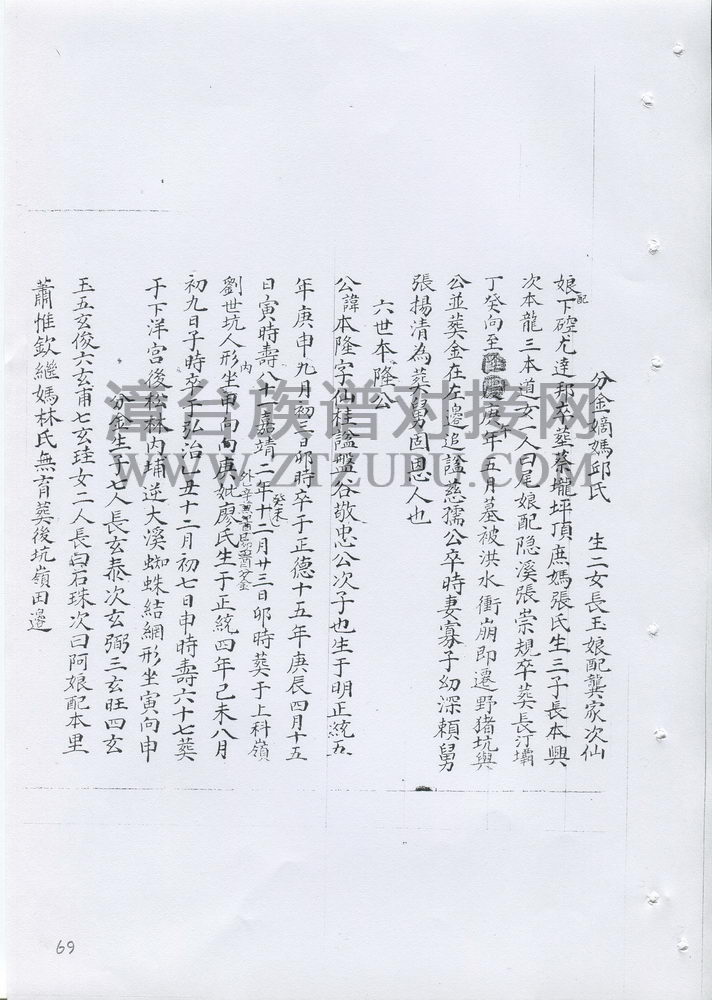 分金嫡媽邱氏 生二女長玉娘配龔家次仙
娘配下磜尤達邦卒塟蔡壠坪頂庶媽張氏生三子長本興
次本龍三本道女一人曰尾娘配隐溪張崇規卒葬長汀壩
丁癸向至庚年五月墓被洪水衝崩即遷野猪坑與
公並葬金在左邊追謚慈孺公卒時妻寡子幼深賴舅
張揚清為葬舅固恩人也
六世本隆公
公諱本隆字仙桂謚盤谷敬忠公次子也生于明正統五
年庚申九月初三日卯時卒于正德十五年庚辰四月十五
日寅時壽八十一嘉靖二年癸未十二月廿三日卯時葬于上科嶺
劉世坑内人形坐甲向庚妣廖氏生于正統四年己未八月
初九日子時卒于弘治乙丑十二月初七日申時壽六十七葬
于下洋宫後松林内埔逆大溪蜘蛛結網形坐寅向申
分金生子七人長玄泰次玄弼三玄旺四玄
玉五玄俊六玄甫七玄珪女二人長曰石珠次曰阿娘配本里
蕭惟欽繼媽林氏無育葬後坑嶺田邊
漳台族谱对接网
WWW.ZTZUPU.COM
69